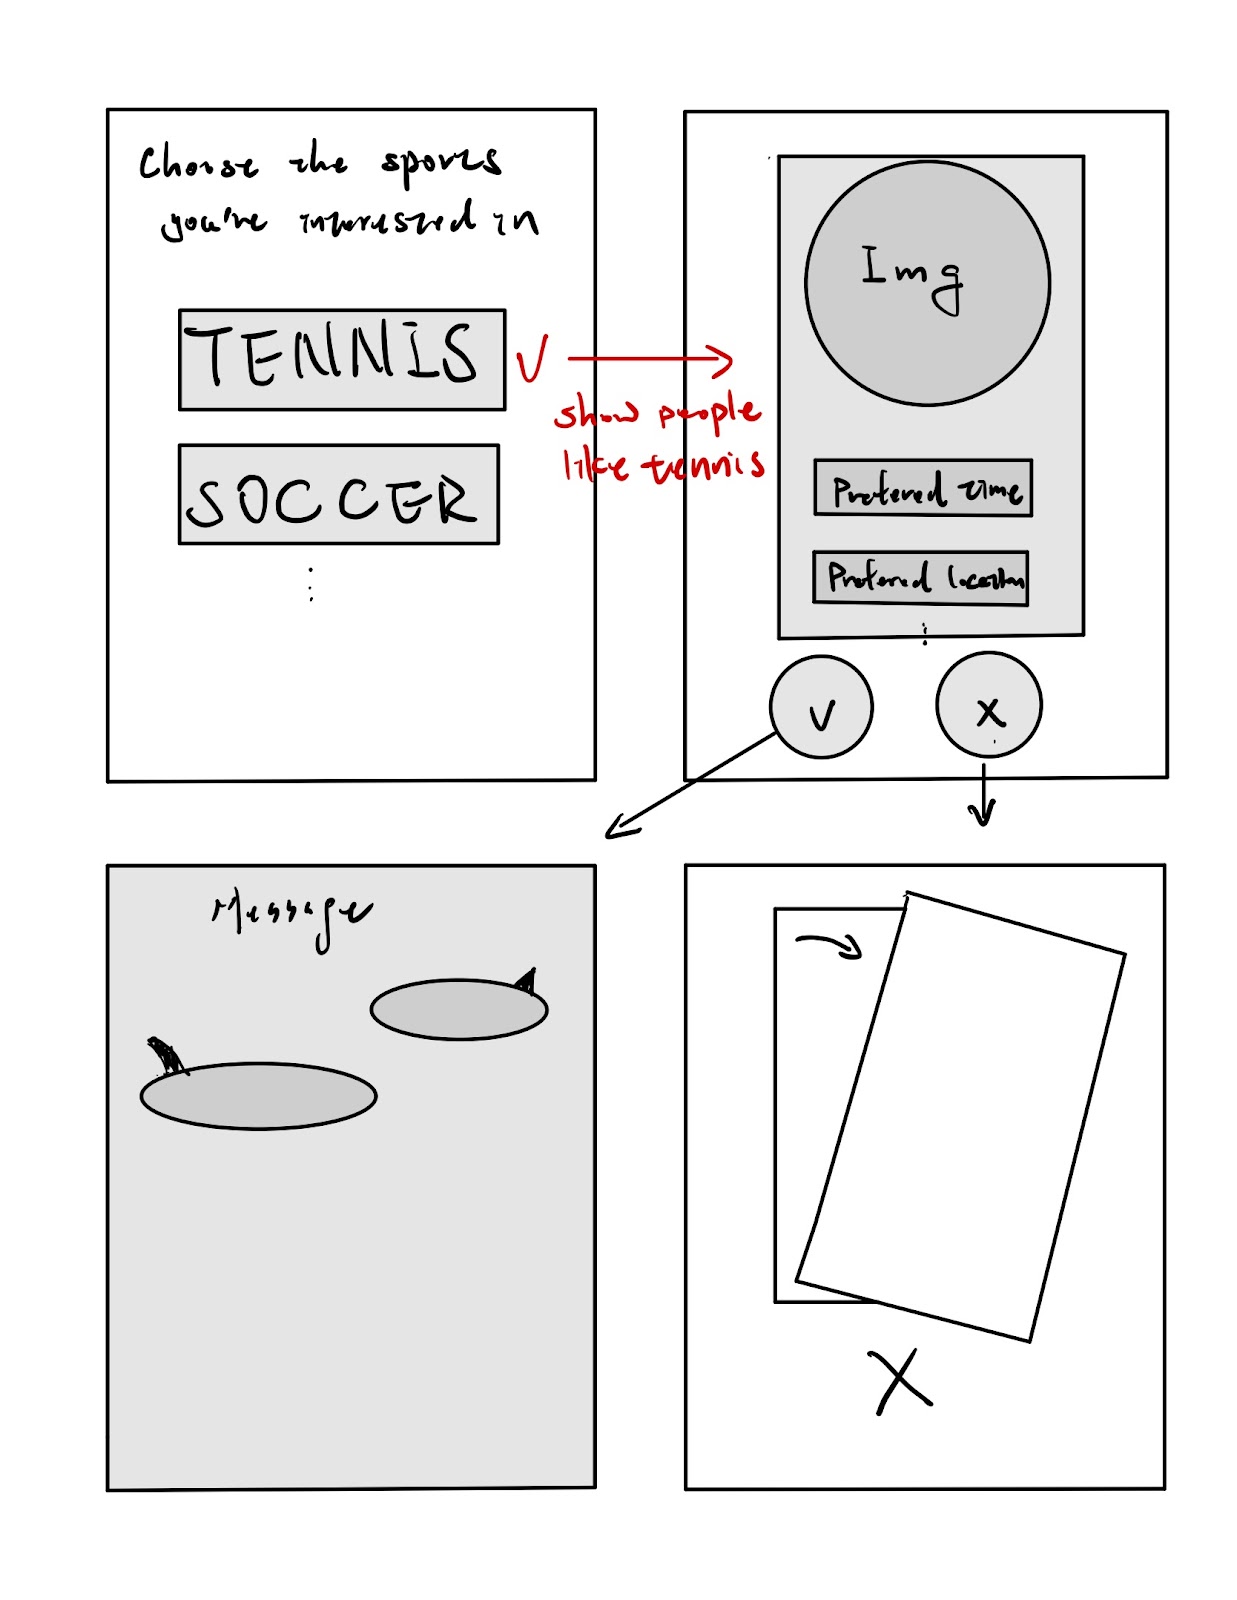 Choose the sports
you're interested in
TENNIS V
SOCCER
show people
like tennis
Img
Prefered time
Prefered location
V X
Message
X